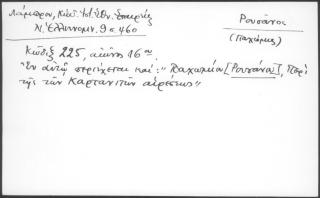 Λάμπρου, Κώδ. Ἱστ. Ἐθν. Ἑταιρίας
Ν. Ἑλληνομν. 9 σ 460
Ρουσᾶνος
(Παχώμιος)
Κῶδιξ 225, αἰῶνος 16ου
"Ἐν αὐτῷ περιέχεται καί: "Παχωμίου [Ρουσάνου], Περὶ
τῆς τῶν Καρτανιτῶν αἱρέσεως"